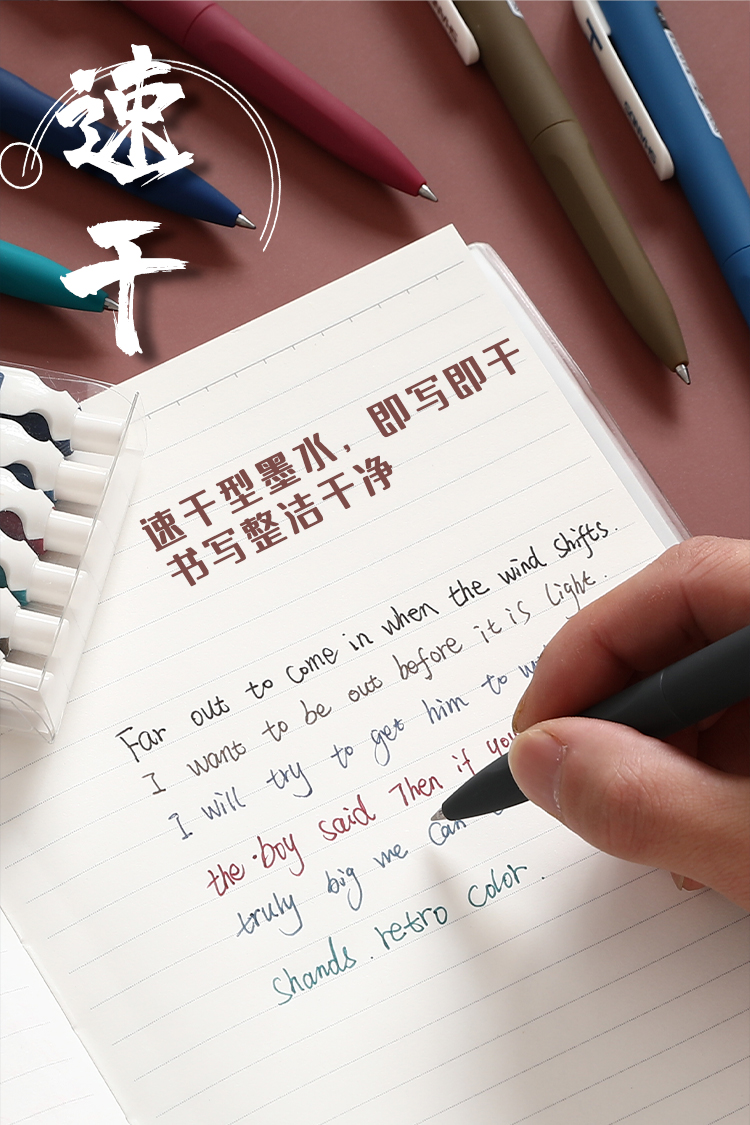 速干
速干型墨水，即写即干
书写整洁干净
Far out to come in when the wind shifts.
I want to be out before it is light.
I will try to get him to
the boy said Then if you
truly big me can
shands. retro color.